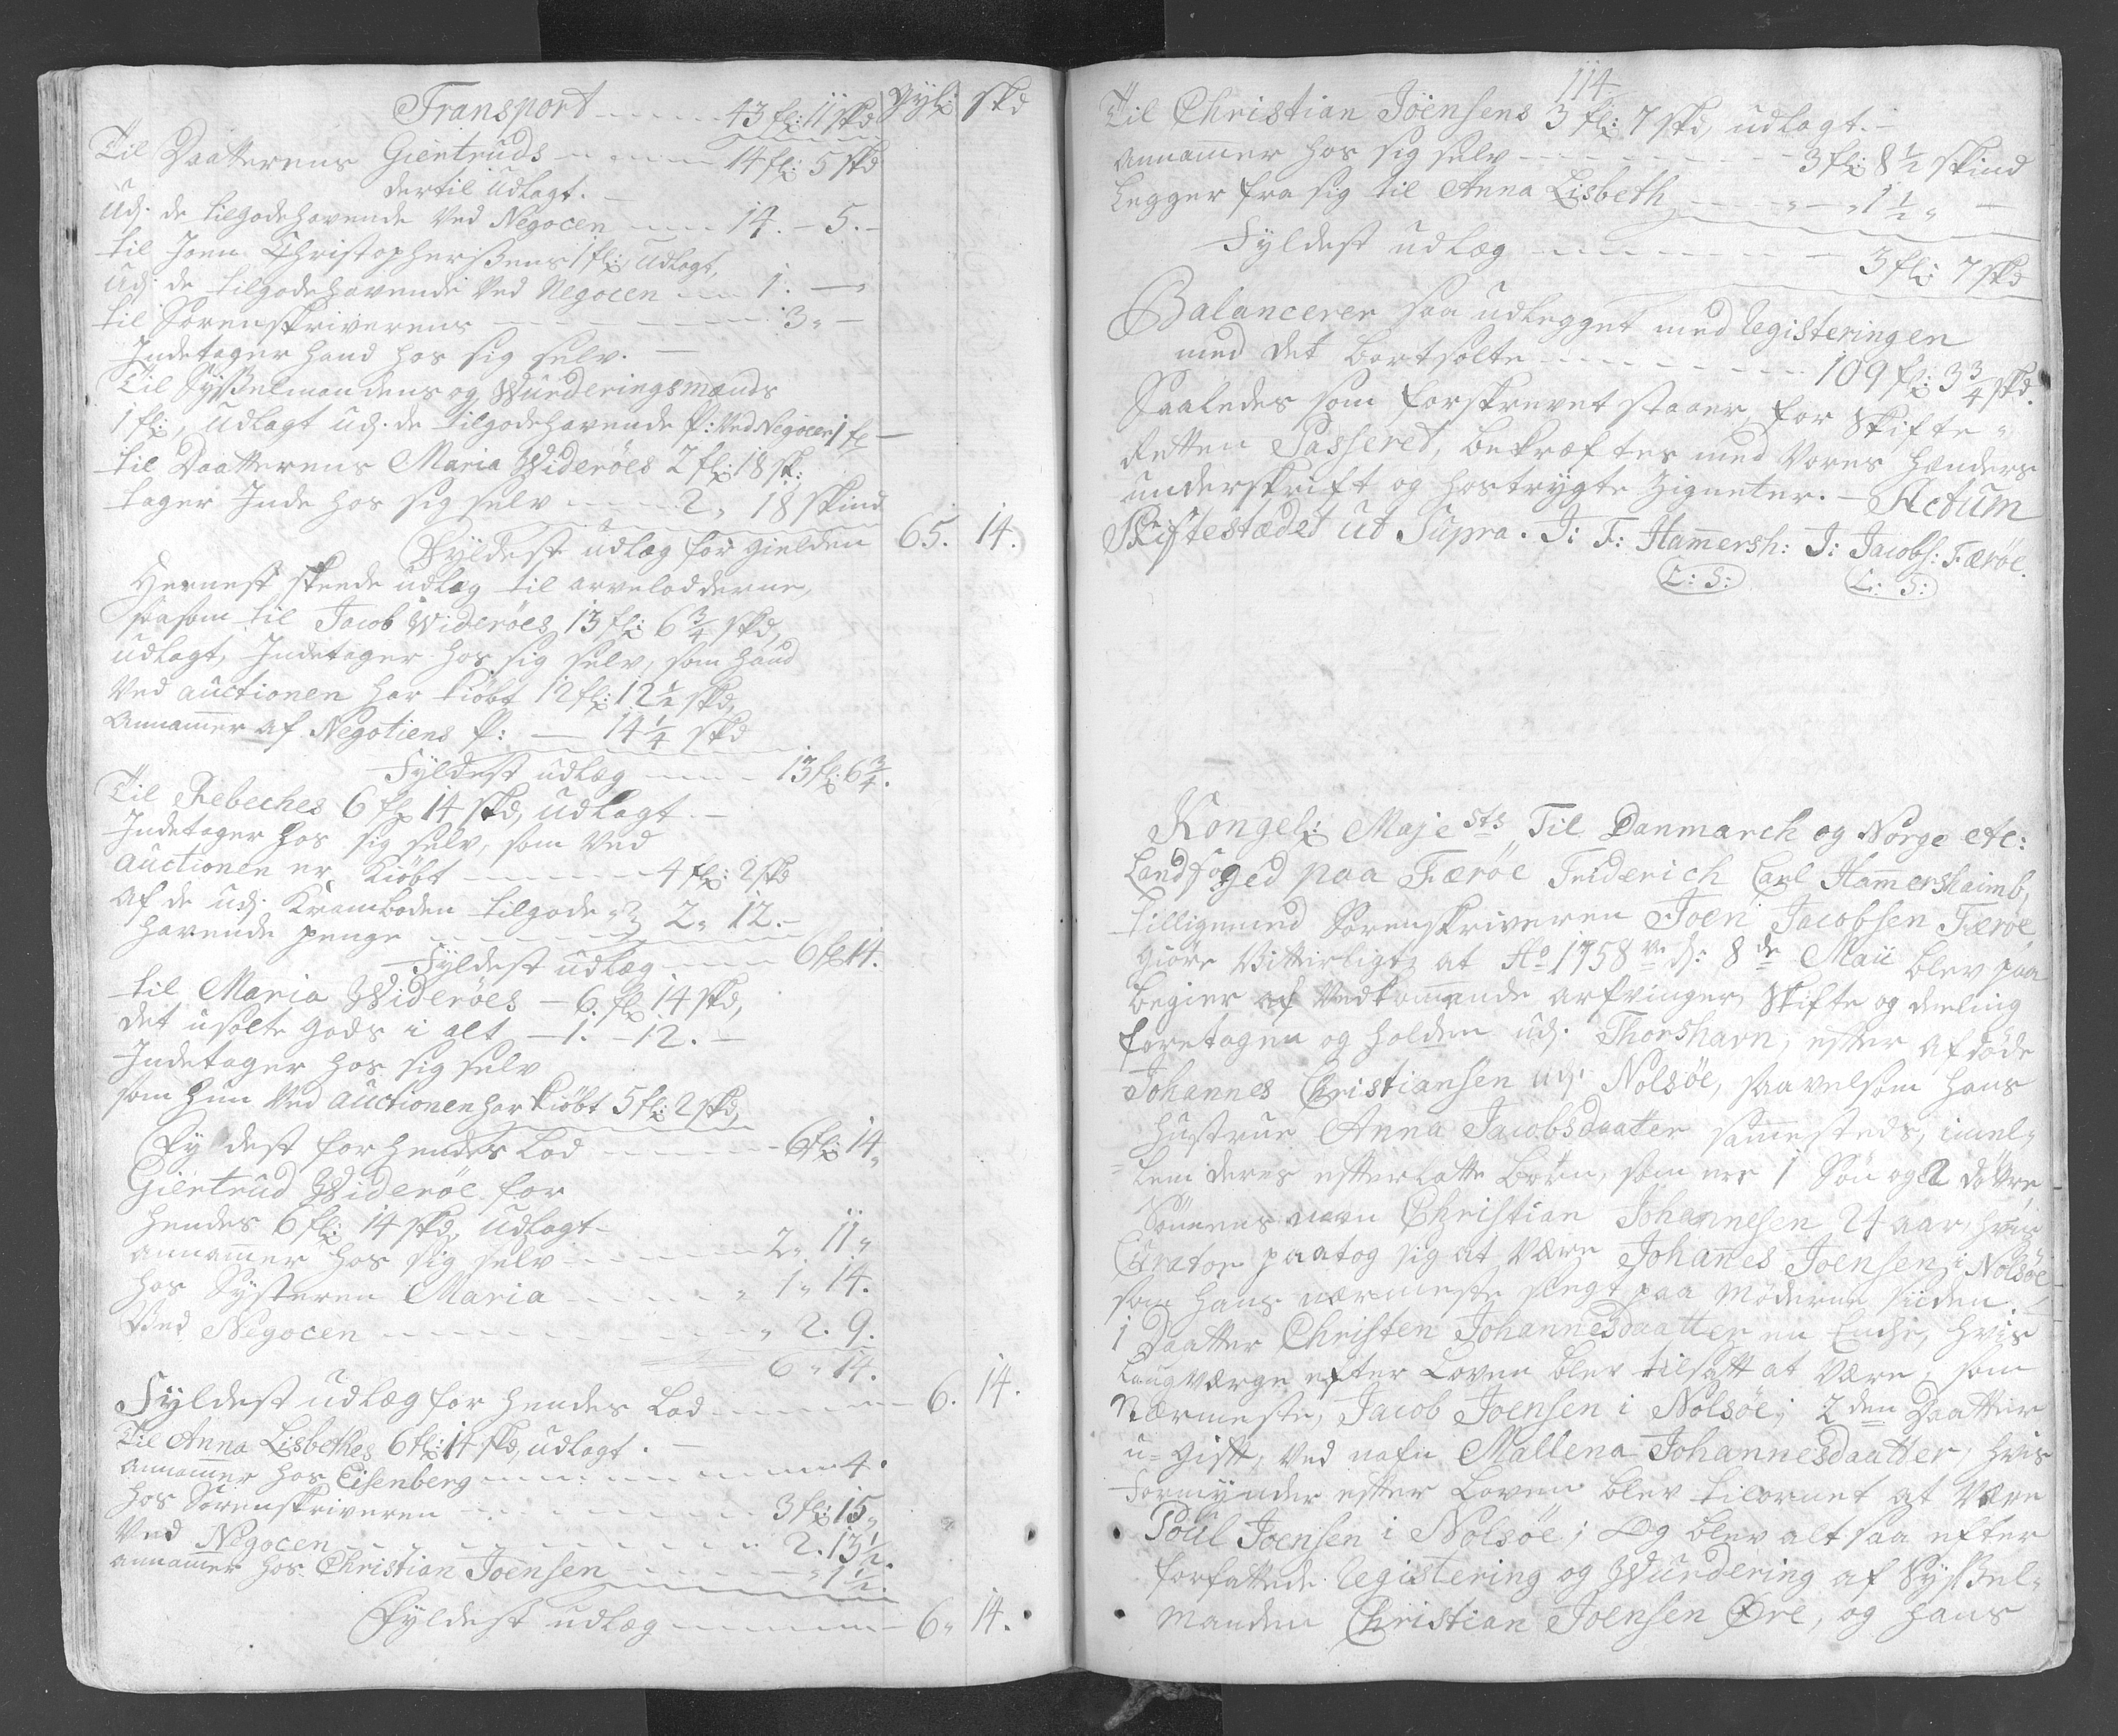 Transport - - - - - 43 fl: 11 skd Gyl: skd
Til Daatterens Giertruds - - - - 14 fl: 5 skd
dertil Udlagt. -
Udj. de tilgodehavende Ved Negocen - - - 14. - 5. -
til Joen Christophersens 1 fl: Udlagt,
Udj. de tilgodehavende Ved Negocen - - 1. - "
til Sorenskriverens - - - - - - - - 3 " -
Indetager hand hos sig selv. -
Til Sysselmandens og Wurderingsmænds
1 fl:, Udlagt udj. de tilgodehavende P: Ved Negocen 1 fl -
til Daatterens Maria Wideröes 2 fl: 18 sk:
tager Inde hos sig selv - - - - 2 " 18 skind
Fyldest udlæg for gielden 65. 14.
Hernest skeede udlæg til arvelodderne,
saasom til Jacob Wideröes 13 fl: 6 3/4 skd,
udlagt, Indetager hos sig selv, som hand
Ved auctionen har kiöbt 12 fl: 12 1/2 skd,
annam̄er af Negotiens P: - 14 1/4 skd
Fyldest udlæg - - - - 13 fl: 6 3/4.
Til Rebeches 6 fl: 14 skd, udlagt. -
Indetager hos sig selv, som Ved
auctionen er kiöbt - - - - - - 4 fl: 2 skd
af de udj. Kramboden tilgode 2 " 12. -
havende penge - - - - - -
Fyldest udlæg - - - - 6 fl 14.
til Maria Wideröes - 6. fl: 14 skd,
det usolte gods i alt - 1. - 12. -
Indetager hos sig selv
som hun Ved auctionen har kiöbt 5 fl: 2 skd,
Fyldest for hendes Lod - - - - - - 6 fl: 14 "
Giertrud Wideröe for
hendes 6 fl: 14 skd, udlagt -
annam̄er hos sig selv - - - - - - 2 " 11 "
hos Systeren Maria - - - - - " 1 " 14.
Ved Negocen - - - - - - - - - " 2. 9.
6 " 14.
Fyldest udlæg for hendes Lod - - - - - - 6. 14.
Til Anna Lisbethes 6 fl: 14 skd, udlagt. -
annam̄er hos Eisenberg - - - - - - - - - 4.
hos Sorenskriveren - - - - - - - 3 fl: 15 "
Ved Negocen - - - - - - - - - 2. 13 1/2.
annam̄er hos Christian Joensen - - - - - " 1 1/2.
Fyldest udlæg - - - - - - - 6 " 14.
114
Til Christian Jöensens 3 fl: 7 skd, udlagt. -
annamer hos sig selv - - - - - - - - - 3 fl: 8 1/2 skind
Legger fra sig til Anna Lisbeth - - - - " - " 1 1/2 " -
Fyldest udlæg - - - - - - - - 3 fl: 7 skd
Balancerer saa udlegget med Registeringen
med det bortsolte - - - - - - - - 109 fl: 3 3/4 skd.
Saaledes som forskrevet staaer, for Skifte "
Retten Passeret, bekræftes med Vores hænders
underskrift og hostrygte Zigneter. - Actum
Skiftestædet ut Supra. J: F: Ham̄ersh: J: Jacobs: Færöe.
L: S: L: S:
Kongel: Majests Til Danmarck og Norge etc:
Landfoged paa Færöe Friderich Carl Ham̄ershaimb,
tilligemed Sorenskriveren Joen Jacobsen Færöe,
giöre Vitterligt, at Ao 1758 ve d: 8 de Maii blev paa
begier af Vedkom̄ende arfvinger, Skifte og deeling
foretagen og holden udj. Thorshavn, efter afdöde
Johannes Christiansen udj. Nolsöe, saavelsom hans
hustrue Anna Jacobsdaatter sam̄esteds, imel=
=lem deres efterlatte börn, som ere 1 Sön og 2 döttre,
Sönnens navn Christian Johannesen 24 aar, hvis
Curator paatog sig at Være Johan̄es Joensen i Nolsöe
som hans nærmeste slegt paa möderne siiden.
1 Daatter Christen Johannesdaatter en Encke, hvis
Laugværge efter Loven blev tilsatt at Være, som
Nærmeste, Jacob Joensen i Nolsöe; 2 den Daatter
u=gift, ved nafn Mallena Johannesdaatter, hvis
Formynder efter Loven blev tilornet at Være
Poul Joensen i Nolsöe; Og blev alt saa efter
forfattede Registering og Wurdering af Syssel=
manden Christian Joensen Øre, og hans